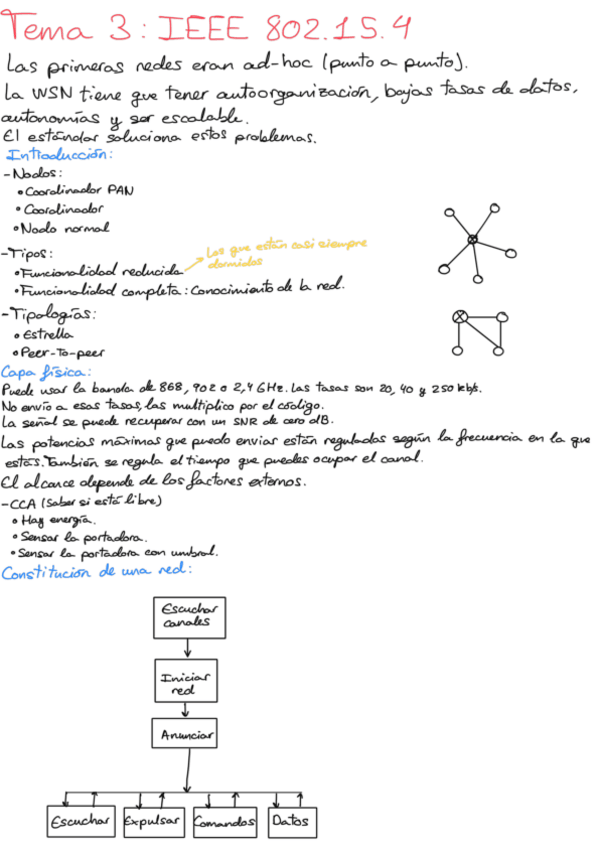 Tema 3: IEEE 802.15.4
Las primeras redes eran ad-hoc (punto a punto).
La WSN tiene que tener autoorganización, bajas tasas de datos,
autonomías y ser escalable.
El estándar soluciona estos problemas.
Introducción:
-Nodos:
•Coordinador PAN
•Coordinador
•Nodo normal
-Tipos:
•Funcionalidad reducida
Los que están casi siempre
dormidos
•Funcionalidad completa: Conocimiento de la red.
-Tipologías:
•Estrella
•Peer-To-peer
Capa física:
Puede usar la banda de 868, 902 o 2,4 GHz. Las tasas son 20, 40 y 250 kb/s.
No envío a esas tasas, las multiplico por el código.
La señal se puede recuperar con un SNR de cero dB.
Las potencias máximas que puedo enviar están reguladas según la frecuencia en la que
estás. También se regula el tiempo que puedes ocupar el canal.
El alcance depende de los factores externos.
-CCA (Saber si está libre)
•Hay energía.
•Sensar la portadora.
•Sensar la portadora con umbral.
Constitución de una red:
Escuchar
canales
Iniciar
red
Anunciar
Escuchar Expulsar Comandos Datos